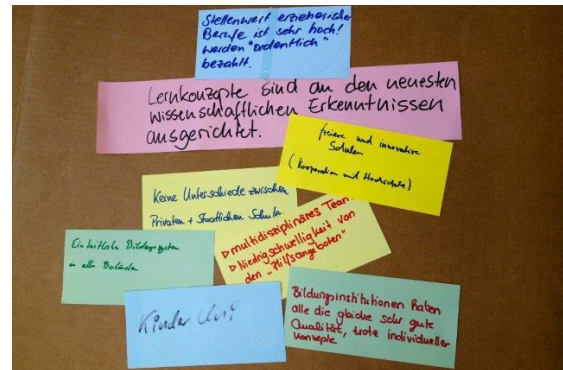 Stellenwert erzieherischer
Berufe ist sehr hoch!
werden "ordentlich"
bezahlt.
Lernkonzepte sind an den neuesten
wissenschaftlichen Erkenntnissen
ausgerichtet.
freiere und innovative
Schulen
(Kooperation mit Hochschule)
Keine Unterschiede zwischen
Privaten + Staatlichen Schulen.
▷ multidisziplinäres Team
▷ Niedrigschwelligkeit von
den "Hilfsangeboten"
Einheitliche Bildungssystem
in allen
Kinder Uni
Bildungsinstitutionen haben
alle die gleiche sehr gute
Qualität, trotz individueller
Konzepte